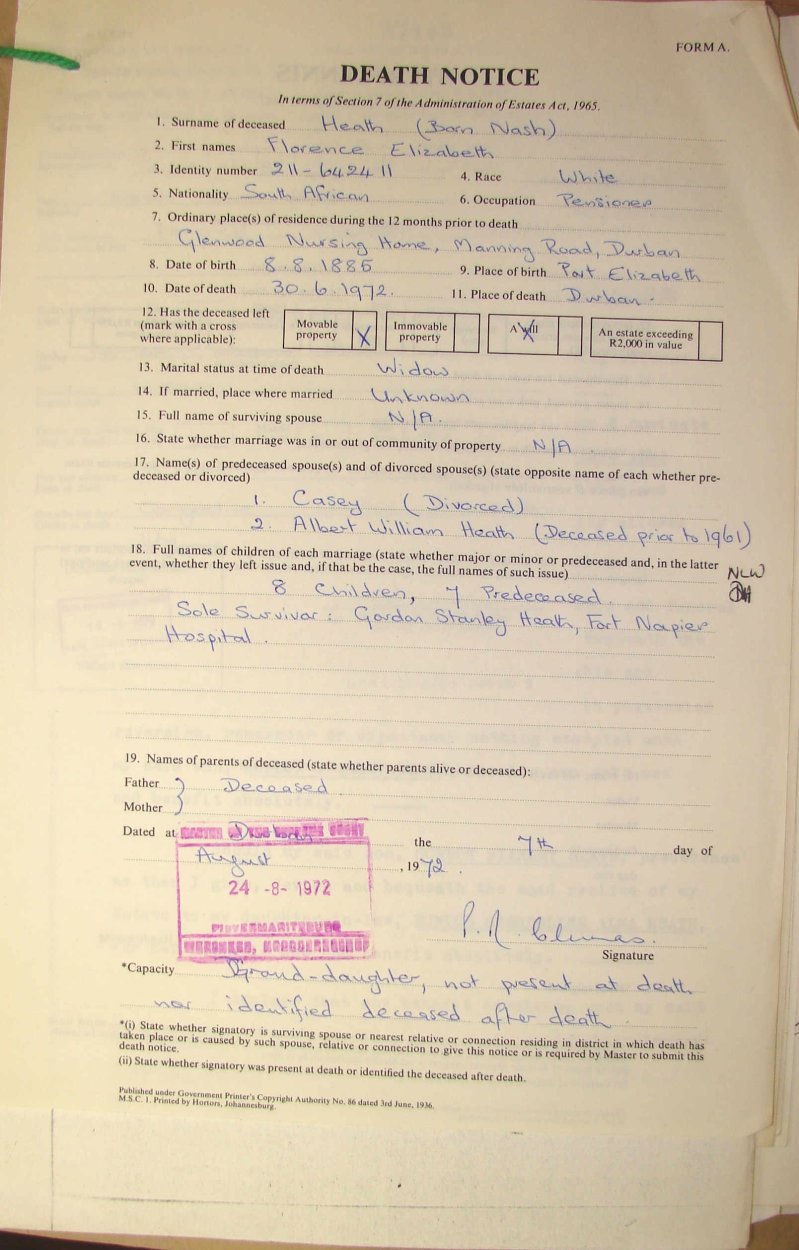 FORM A.
DEATH NOTICE
In terms of Section 7 of the Administration of Estates Act, 1965.
1. Surname of deceased Heath (Born Nash)
2. First names Florence Elizabeth
3. Identity number 211-642411 4. Race White
5. Nationality South African 6. Occupation Pensioner
7. Ordinary place(s) of residence during the 12 months prior to death
Glenwood Nursing Home, Manning Road, Durban
8. Date of birth 8.8.1886 9. Place of birth Port Elizabeth
10. Date of death 30.6.1972. 11. Place of death Durban.
12. Has the deceased left (mark with a cross where applicable): Movable property X Immovable property A will X An estate exceeding R2,000 in value
13. Marital status at time of death Widow
14. If married, place where married Unknown
15. Full name of surviving spouse N/A.
16. State whether marriage was in or out of community of property N/A.
17. Name(s) of predeceased spouse(s) and of divorced spouse(s) (state opposite name of each whether pre-
deceased or divorced)
1. Casey (Divorced)
2. Albert William Heath (Deceased prior to 1961)
18. Full names of children of each marriage (state whether major or minor or predeceased and, in the latter
event, whether they left issue and, if that be the case, the full names of such issue) NLW
8 Children, 7 Predeceased.
Sole Survivor: Gordon Stanley Heath, Fort Napier
Hospital.
19. Names of parents of deceased (state whether parents alive or deceased):
Father } Deceased.
Mother }
Dated at Durban the 7th day of
August, 1972.
24 -8- 1972
PIETERMARITZBURG
Signature
*Capacity Grand-daughter, not present at death
nor identified deceased after death.
*(i) State whether signatory is surviving spouse or nearest relative or connection residing in district in which death has
taken place or is caused by such spouse, relative or connection to give this notice or is required by Master to submit this
death notice.
(ii) State whether signatory was present at death or identified the deceased after death.
Published under Government Printer's Copyright Authority No. 86 dated 3rd June, 1936.
M.S.C. 1. Printed by Hortors, Johannesburg.